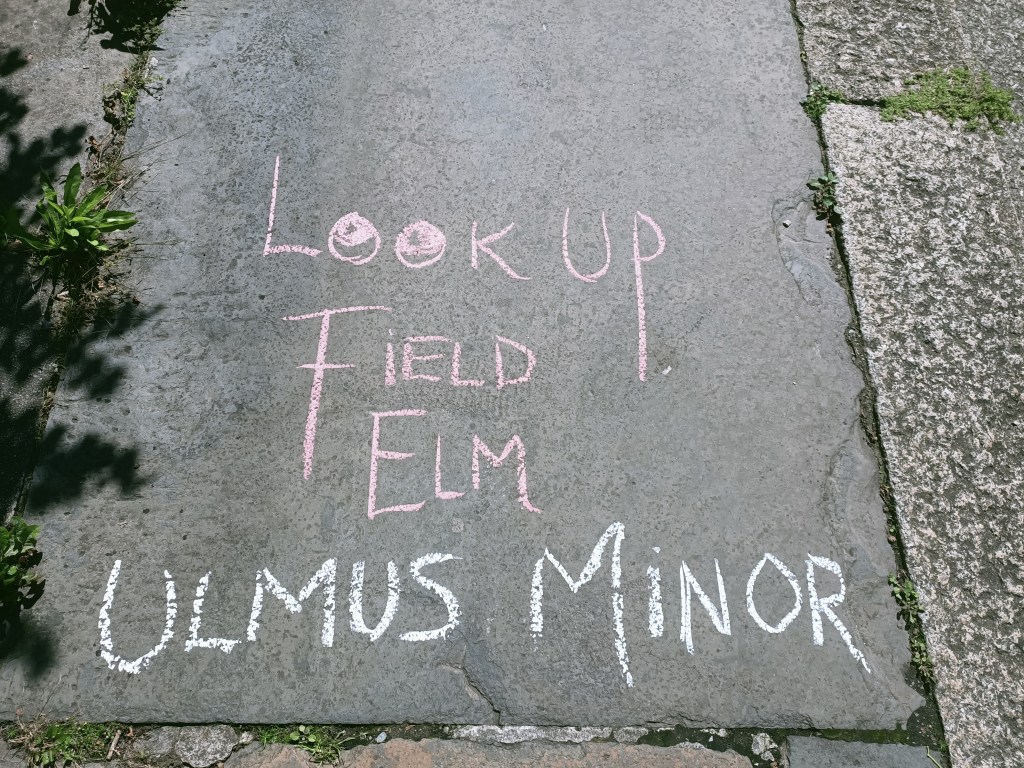 Look up
Field
Elm
Ulmus Minor